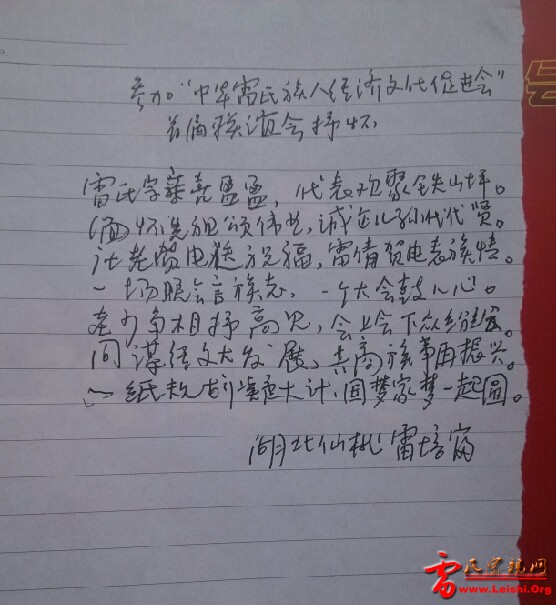 参加“中华雷氏族人经济文化促进会”
首届联谊会抒怀
雷氏宗亲喜盈盈,代表欢聚铁山坪。
缅怀先祖颂伟业,诚 代代贤。
贺电送祝福,雷倩贺电表族情。
一场 会 族志,一个大会鼓人心。
老少争相抒高见,会上会下众纷纭。
同谋经文大发展,共商族事再振兴。
一纸规划 大计,国梦家梦一起圆。
湖北仙桃 雷培富
雷氏宗亲网
www.Leishi.Org